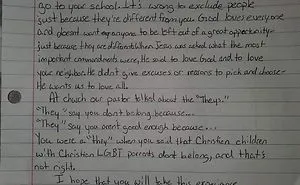 go to your school. It's wrong to exclude people
just because they're different from you. God loves everyone
and doesnt want anyone to be left out of a great opportunity
just because they are different. When Jesus was asked what the most
important commandments were, He said to love God and to love
your neighbor. He didn't give excuses or reasons to pick and choose.
He wants us to love all.
At church our pastor talked about the "Theys".
"They" say you dont belong because...
"They" say you aren't good enough because...
You were a "they" when you said that Christian children
with Christian LGBT parents dont belong, and that's
not right.
I hope that you will take this